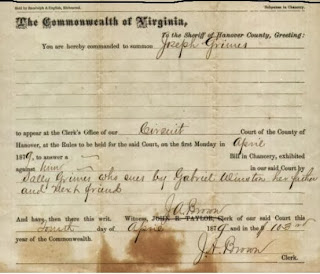 Sold by Randolph & English, Richmond. Subpoena in Chancery.
The Commonwealth of Virginia,
To the Sheriff of Hanover County, Greeting:
You are hereby commanded to summon Joseph Grimes
to appear at the Clerk's office of our Circuit Court of the County of
Hanover, at the Rules to be held for the said Court, on the first Monday in April
1879, to answer a Bill in Chancery, exhibited
against him in our said Court by
Sally Grimes who sues by Gabriel Winston her father
and next friend
J.A. Brown
And have, then there this writ. Witness, JOHN R. TAYLOR, Clerk of our said Court this
Fourth day of April 1879 and in the
year of the Commonwealth.
J.A. Brown
Clerk.